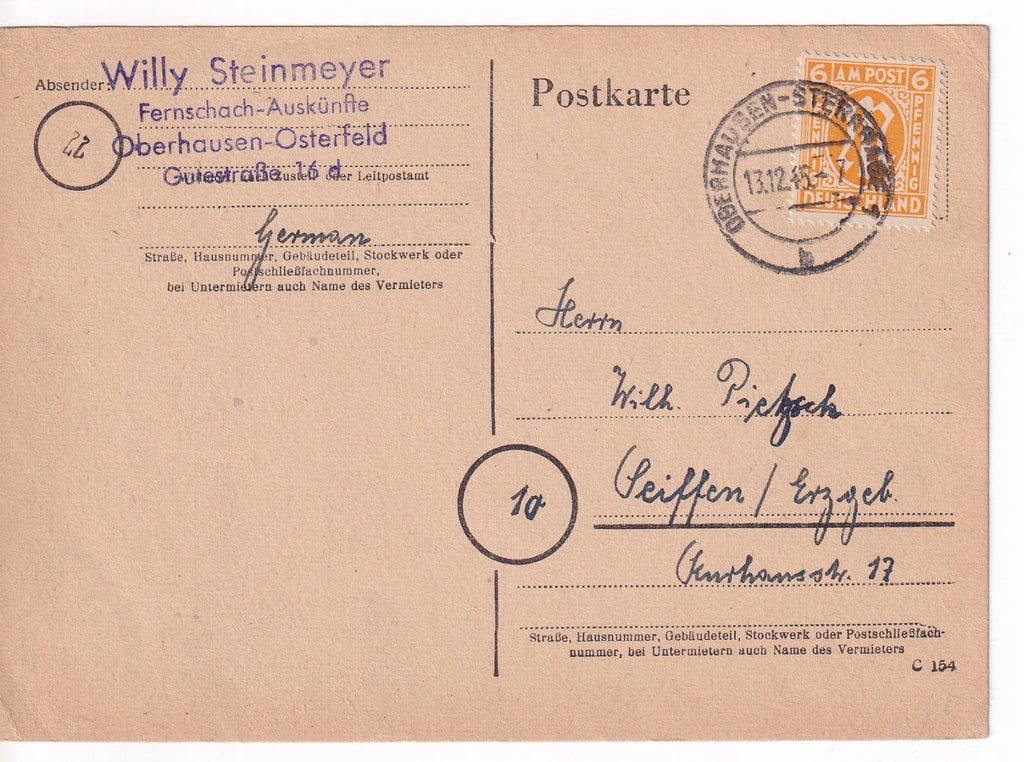 Absender: Willy Steinmeyer
Fernschach-Auskünfte
Oberhausen-Osterfeld
Gutestraße 16 d
Wohnort, auch Zustell- oder Leitpostamt
22
German
Straße, Hausnummer, Gebäudeteil, Stockwerk oder
Postschließfachnummer,
bei Untermietern auch Name des Vermieters
Postkarte
6 AM POST 6
PFENNIG
DEUTSCHLAND
OBERHAUSEN-STERKRADE 1
13.12.45
b
Herrn
Wilh. Pietzsch
10
Seiffen / Erzgeb.
Kurhausstr. 17
Straße, Hausnummer, Gebäudeteil, Stockwerk oder Postschließfach-
nummer, bei Untermietern auch Name des Vermieters
C 154